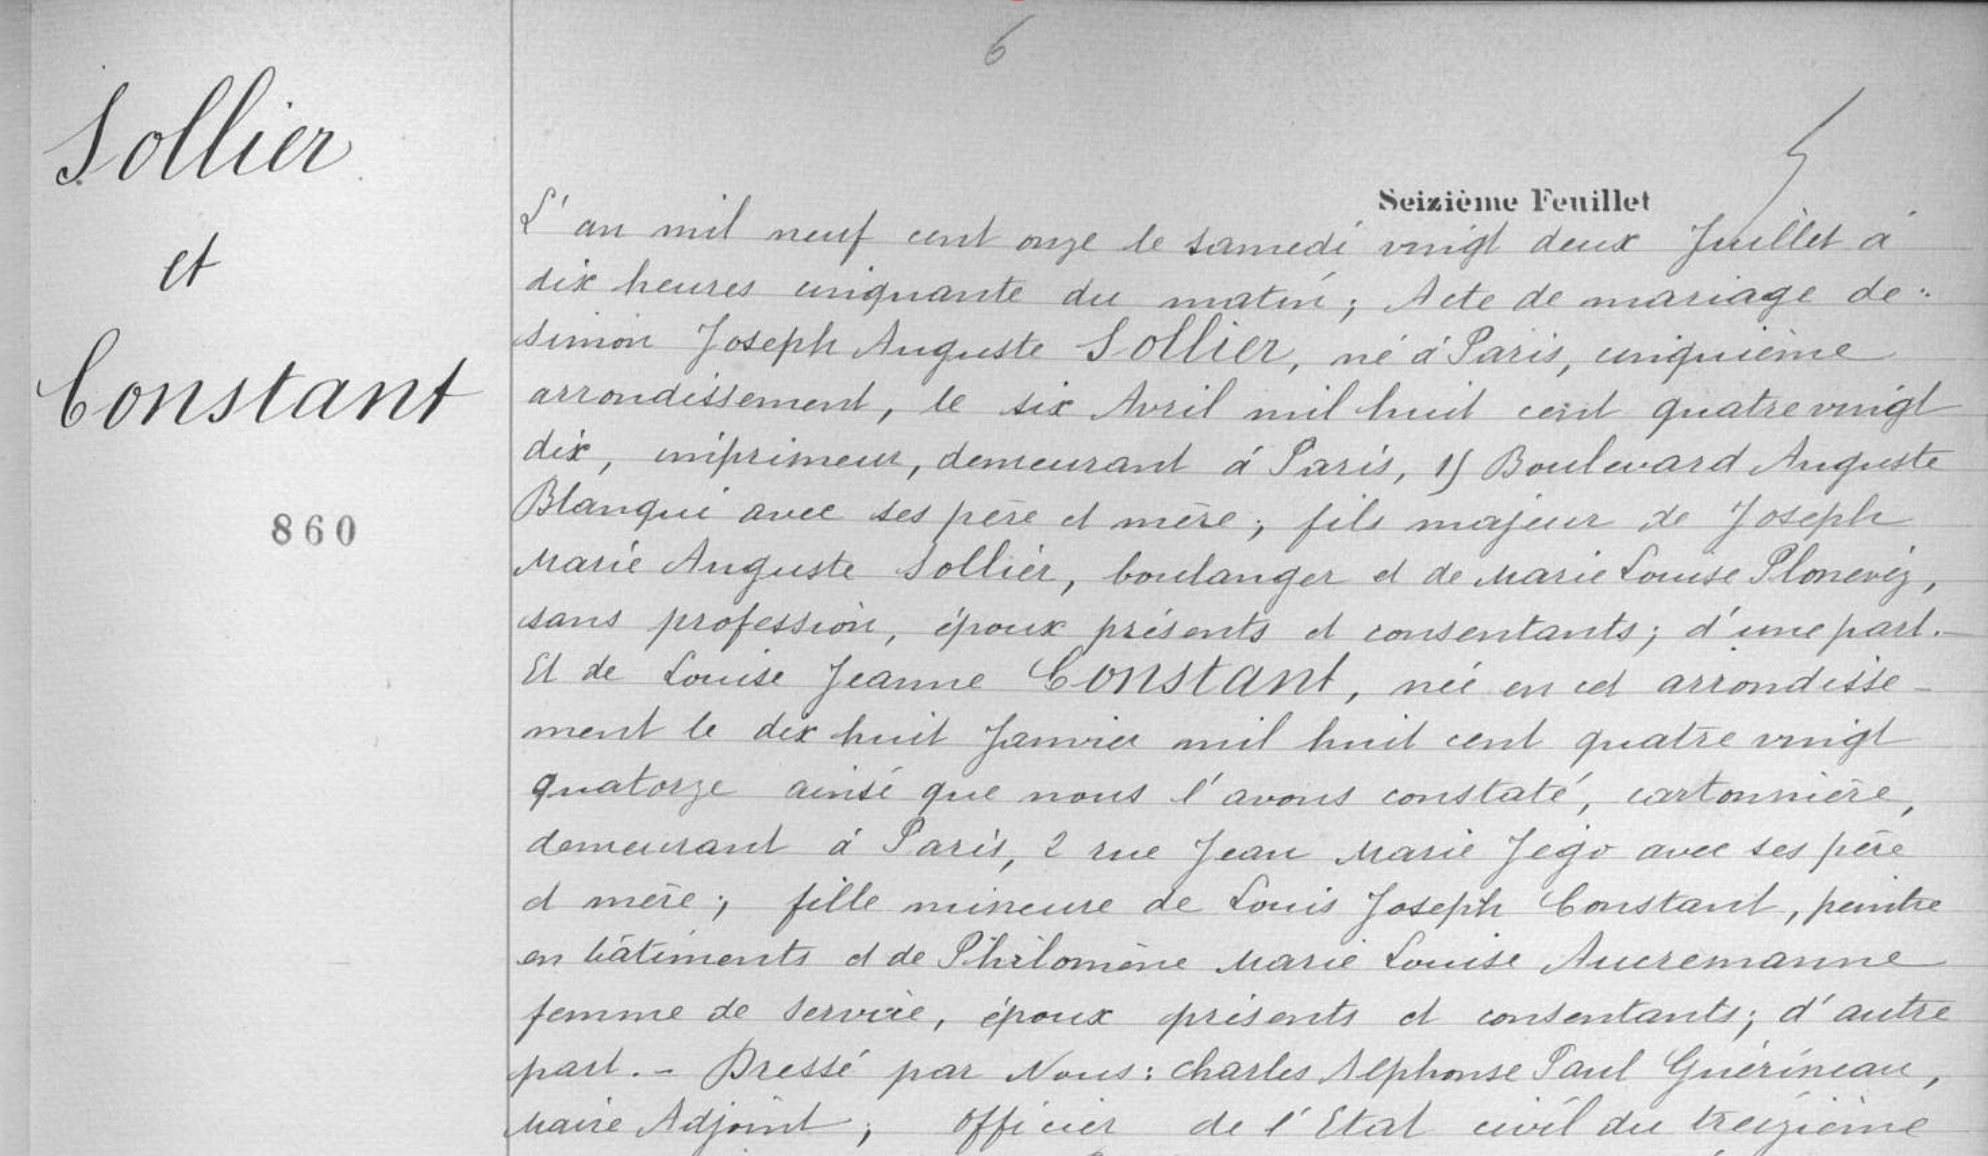 6
Sollier
et
Constant
860
Seizième Feuillet
L'an mil neuf cent onze le samedi vingt deux Juillet à
dix heures cinquante du matin; Acte de mariage de:
Simon Joseph Auguste Sollier, né à Paris, cinquième
arrondissement, le six Avril mil huit cent quatre vingt
dix, imprimeur, demeurant à Paris, 15 Boulevard Auguste
Blanqui avec ses père et mère; fils majeur de Joseph
Marie Auguste Sollier, boulanger et de Marie Louise Plonevez,
sans profession, époux présents et consentants; d'une part.
Et de Louise Jeanne Constant, née en cet arrondisse-
ment le dix huit Janvier mil huit cent quatre vingt
quatorze ainsi que nous l'avons constaté, cartonnière,
demeurant à Paris, 2 rue Jean Marie Jego avec ses père
et mère; fille mineure de Louis Joseph Constant, peintre
en bâtiments et de Philomène Marie Louise Aucremanne
femme de service, époux présents et consentants; d'autre
part. - Dressé par Nous: Charles Alphonse Paul Guérineau,
Maire Adjoint, officier de l'Etat civil du treizième